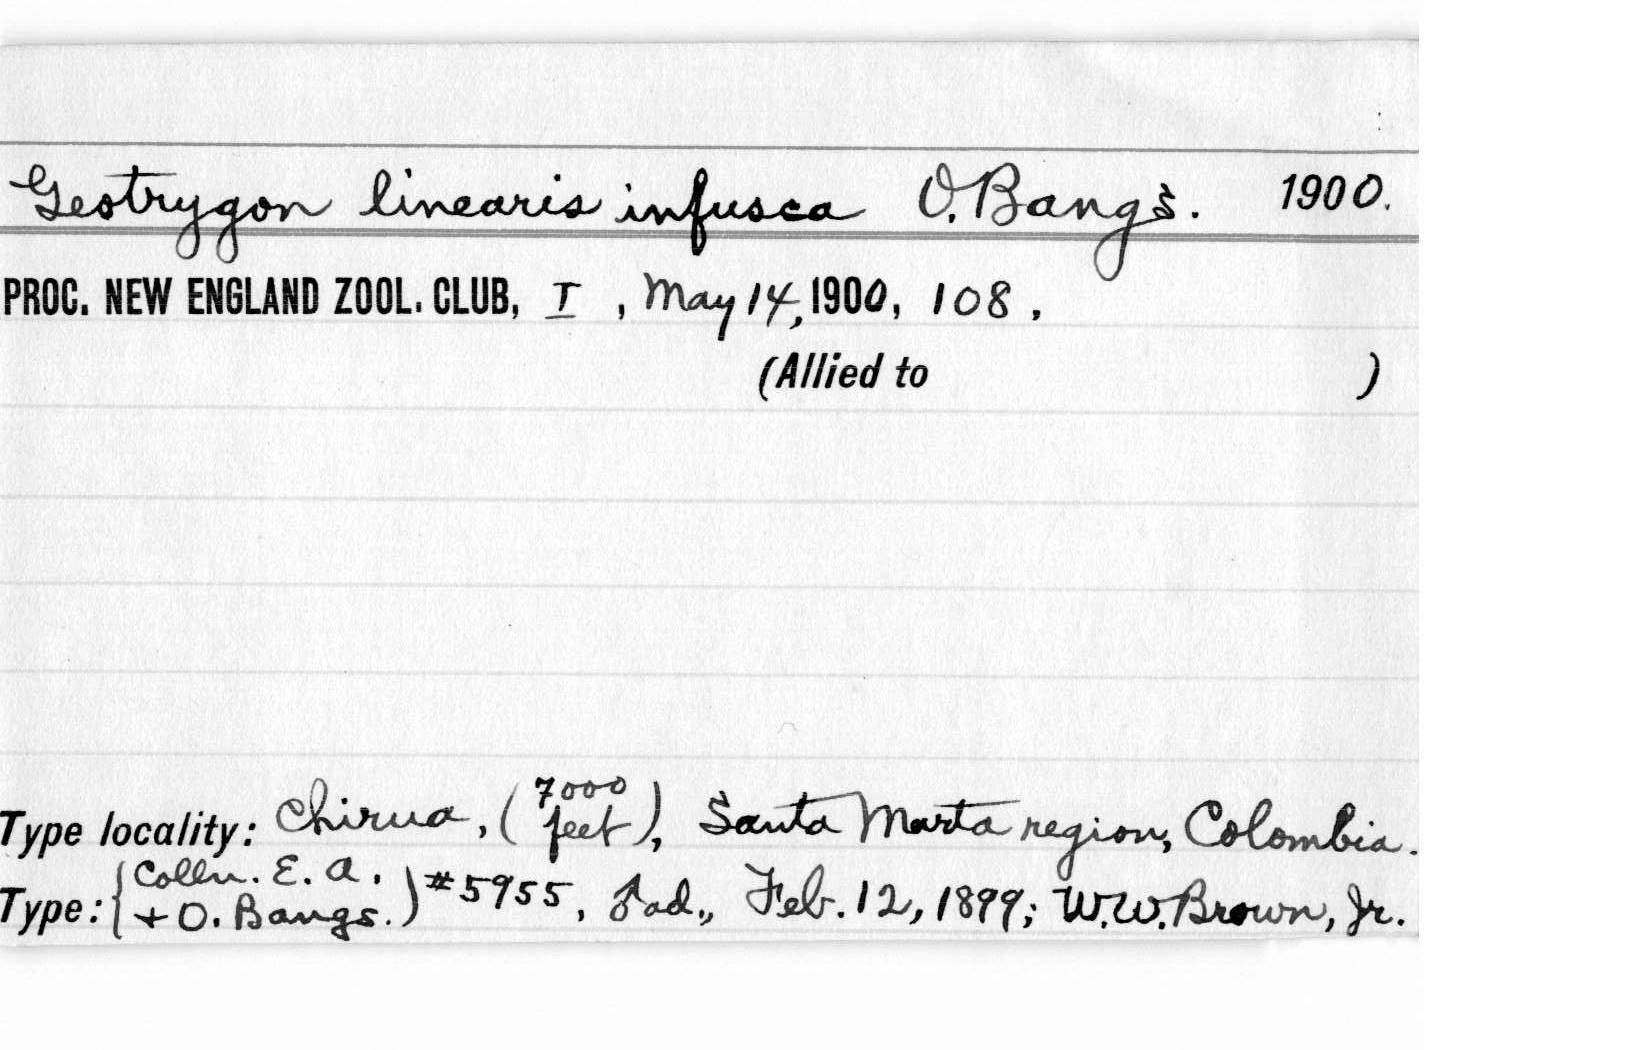 Geotrygon linearis infusca O. Bangs. 1900.
PROC. NEW ENGLAND ZOOL. CLUB, I, May 14, 1900, 108.
(Allied to )
Type locality: Chirua, (7000 feet), Santa Marta region, Colombia.
Type: {Colln. E. A. + O. Bangs.) #5955, ♂ ad., Feb. 12, 1899; W. W. Brown, Jr.